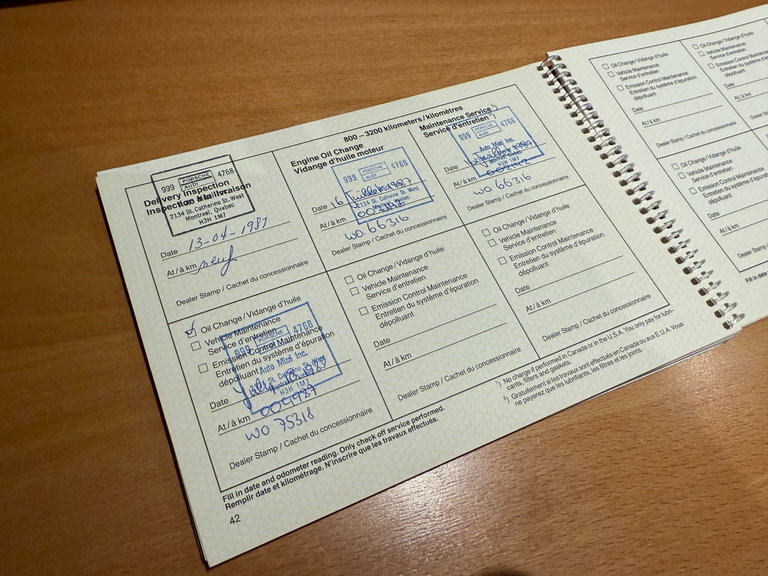 999 PORSCHE AUDI 4768
Delivery Inspection
Inspection à la livraison
2134 St. Catherine St. West
Montreal, Quebec
H3H 1M7
Date 13-04-1987
At / à km neuf
Dealer Stamp / Cachet du concessionnaire
800 – 3200 kilometers / kilomètres
Engine Oil Change
Vidange d'huile moteur
999 PORSCHE AUDI 4768
Date 16 1987
At / à km
WO 66316
Dealer Stamp / Cachet du concessionnaire
Maintenance Service ¹)
Service d'entretien ¹)
999 PORSCHE AUDI 4768
Auto Mini Inc.
H3H 1M7
Date
At / à km
WO 66316
Dealer Stamp / Cachet du concessionnaire
Oil Change / Vidange d'huile
Vehicle Maintenance
Service d'entretien
Emission Control Maintenance
Entretien du système d'épuration
dépolluant
999 4768
Auto Mini Inc.
St. Catherine St. West
H3H 1M7
Date
At / à km 004987
WO 75318
Dealer Stamp / Cachet du concessionnaire
Oil Change / Vidange d'huile
Vehicle Maintenance
Service d'entretien
Emission Control Maintenance
Entretien du système d'épuration
dépolluant
Date
At / à km
Dealer Stamp / Cachet du concessionnaire
Oil Change / Vidange d'huile
Vehicle Maintenance
Service d'entretien
Emission Control Maintenance
Entretien du système d'épuration
dépolluant
Date
At / à km
Dealer Stamp / Cachet du concessionnaire
Fill in date and odometer reading. Only check off service performed.
Remplir date et kilométrage. N'inscrire que les travaux effectués.
¹) No charge if performed in Canada or in the U.S.A. You only pay for lubri-
cants, filters and gaskets.
¹) Gratuitement si les travaux sont effectués en Canada ou aux E.U.A. Vous
ne payerez que les lubrifiants, les filtres et les joints.
42
Oil Change / Vidange d'huile
Vehicle Maintenance
Service d'entretien
Emission Control Maintenance
Entretien du système d'épuration
dépolluant
Date
At / à km
Dealer Stamp / Cachet du concessionnaire
Oil Change / Vidange d'huile
Vehicle Maintenance
Service d'entretien
Emission Control
Entretien du système
dépolluant
Date
At / à km
Dealer Stamp / Cachet
Oil Change / Vidange d'huile
Vehicle Maintenance
Service d'entretien
Emission Control Maintenance
Entretien du système d'épuration
dépolluant
Date
At / à km
Dealer Stamp / Cachet du concessionnaire
Oil Change
Vehicle
Service
Emission
Entretien
dépolluant
Date
At / à km
Fill in date